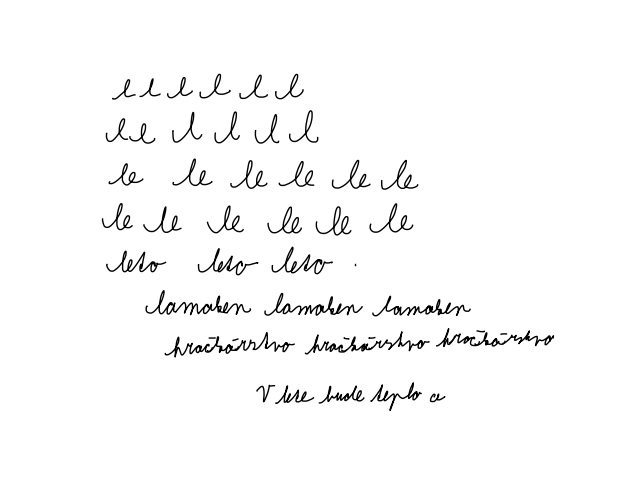 l l l l l l
l l l l l l
le le le le le le
le le le le le le
leto leto leto
lamaken lamaken lamaken
hračkárstvo hračkárstvo hračkárstvo
V lete bude teplo a